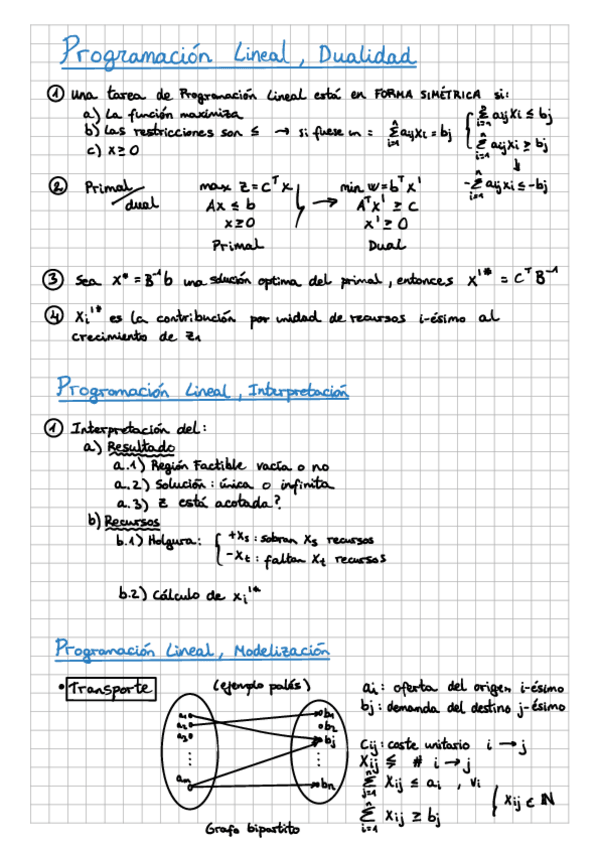 Programación Lineal, Dualidad
① Una tarea de Programación Lineal está en FORMA SIMÉTRICA si:
a) La función maximiza
b) Las restricciones son ≤ → si fuese un = : ∑ⁿᵢ₌₁ aijxi = bj { ∑ⁿᵢ₌₁ aijxi ≤ bj
∑ⁿᵢ₌₁ aijxi ≥ bj
↓
-∑ⁿᵢ₌₁ aijxi ≤ -bj
c) x ≥ 0
② Primal/dual
max z = cᵀx → min w = bᵀx'
Ax ≤ b Aᵀx' ≥ c
x ≥ 0 x' ≥ 0
Primal Dual
③ Sea x* = B⁻¹b una solución optima del primal, entonces x'* = CᵀB⁻¹
④ xi'* es la contribución por unidad de recursos i-ésimo al
crecimiento de z
Programación Lineal, Interpretación
① Interpretación del:
a) Resultado
a.1) Región Factible vacía o no
a.2) Solución: única o infinita
a.3) z está acotada?
b) Recursos
b.1) Holgura: { +xs : sobran xs recursos
-xt : faltan xt recursos
b.2) Cálculo de xi'*
Programación Lineal, Modelización
• Transporte
(ejemplo palés)
a1
a2
a3
⋮
an
b1
b2
bj
⋮
bn
Grafo bipartito
ai: oferta del origen i-ésimo
bj: demanda del destino j-ésimo
Cij: coste unitario i → j
Xij # i → j
∑ⁿⱼ₌₁ Xij ≤ ai , ∀i
∑ᵢ₌₁ Xij ≥ bj
Xij ∈ ℕ